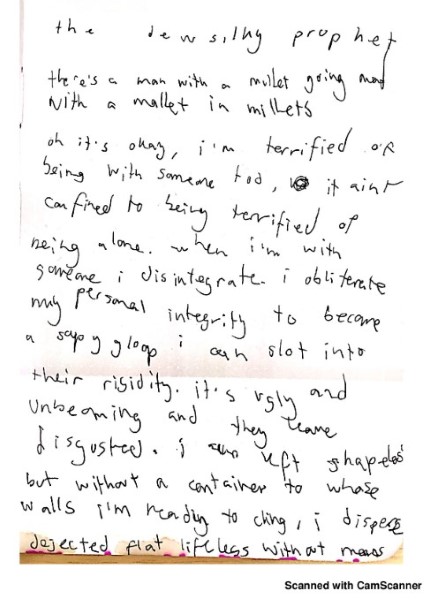 the dewsilky prophet
there's a man with a mullet going mad
with a mallet in millets
oh it's okay, i'm terrified of
being with someone too, it aint
confined to being terrified of
being alone. when i'm with
someone i disintegrate. i obliterate
my personal integrity to become
a sapy gloop i can slot into
their rigidity. it's ugly and
unbecoming and they leave
disgusted. i am left shapeless
but without a container to whose
walls i'm ready to cling, i disperse
dejected flat lifeless without mass
Scanned with CamScanner